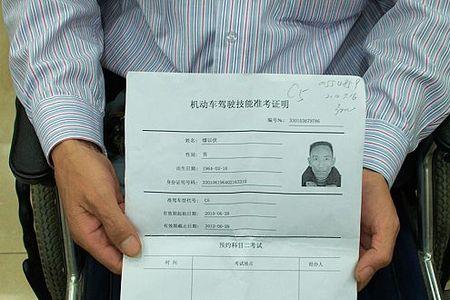 C5
机动车驾驶技能准考证明
编号№: 330103679786
姓名:
性别: 男
出生日期: 1964-02-16
身份证号码: 330106196402163310
准驾车型代号: C5
有效期起始日期: 2010-06-28
有效期截止日期: 2012-06-28
预约科目二考试
时 间 考试地点 经办人